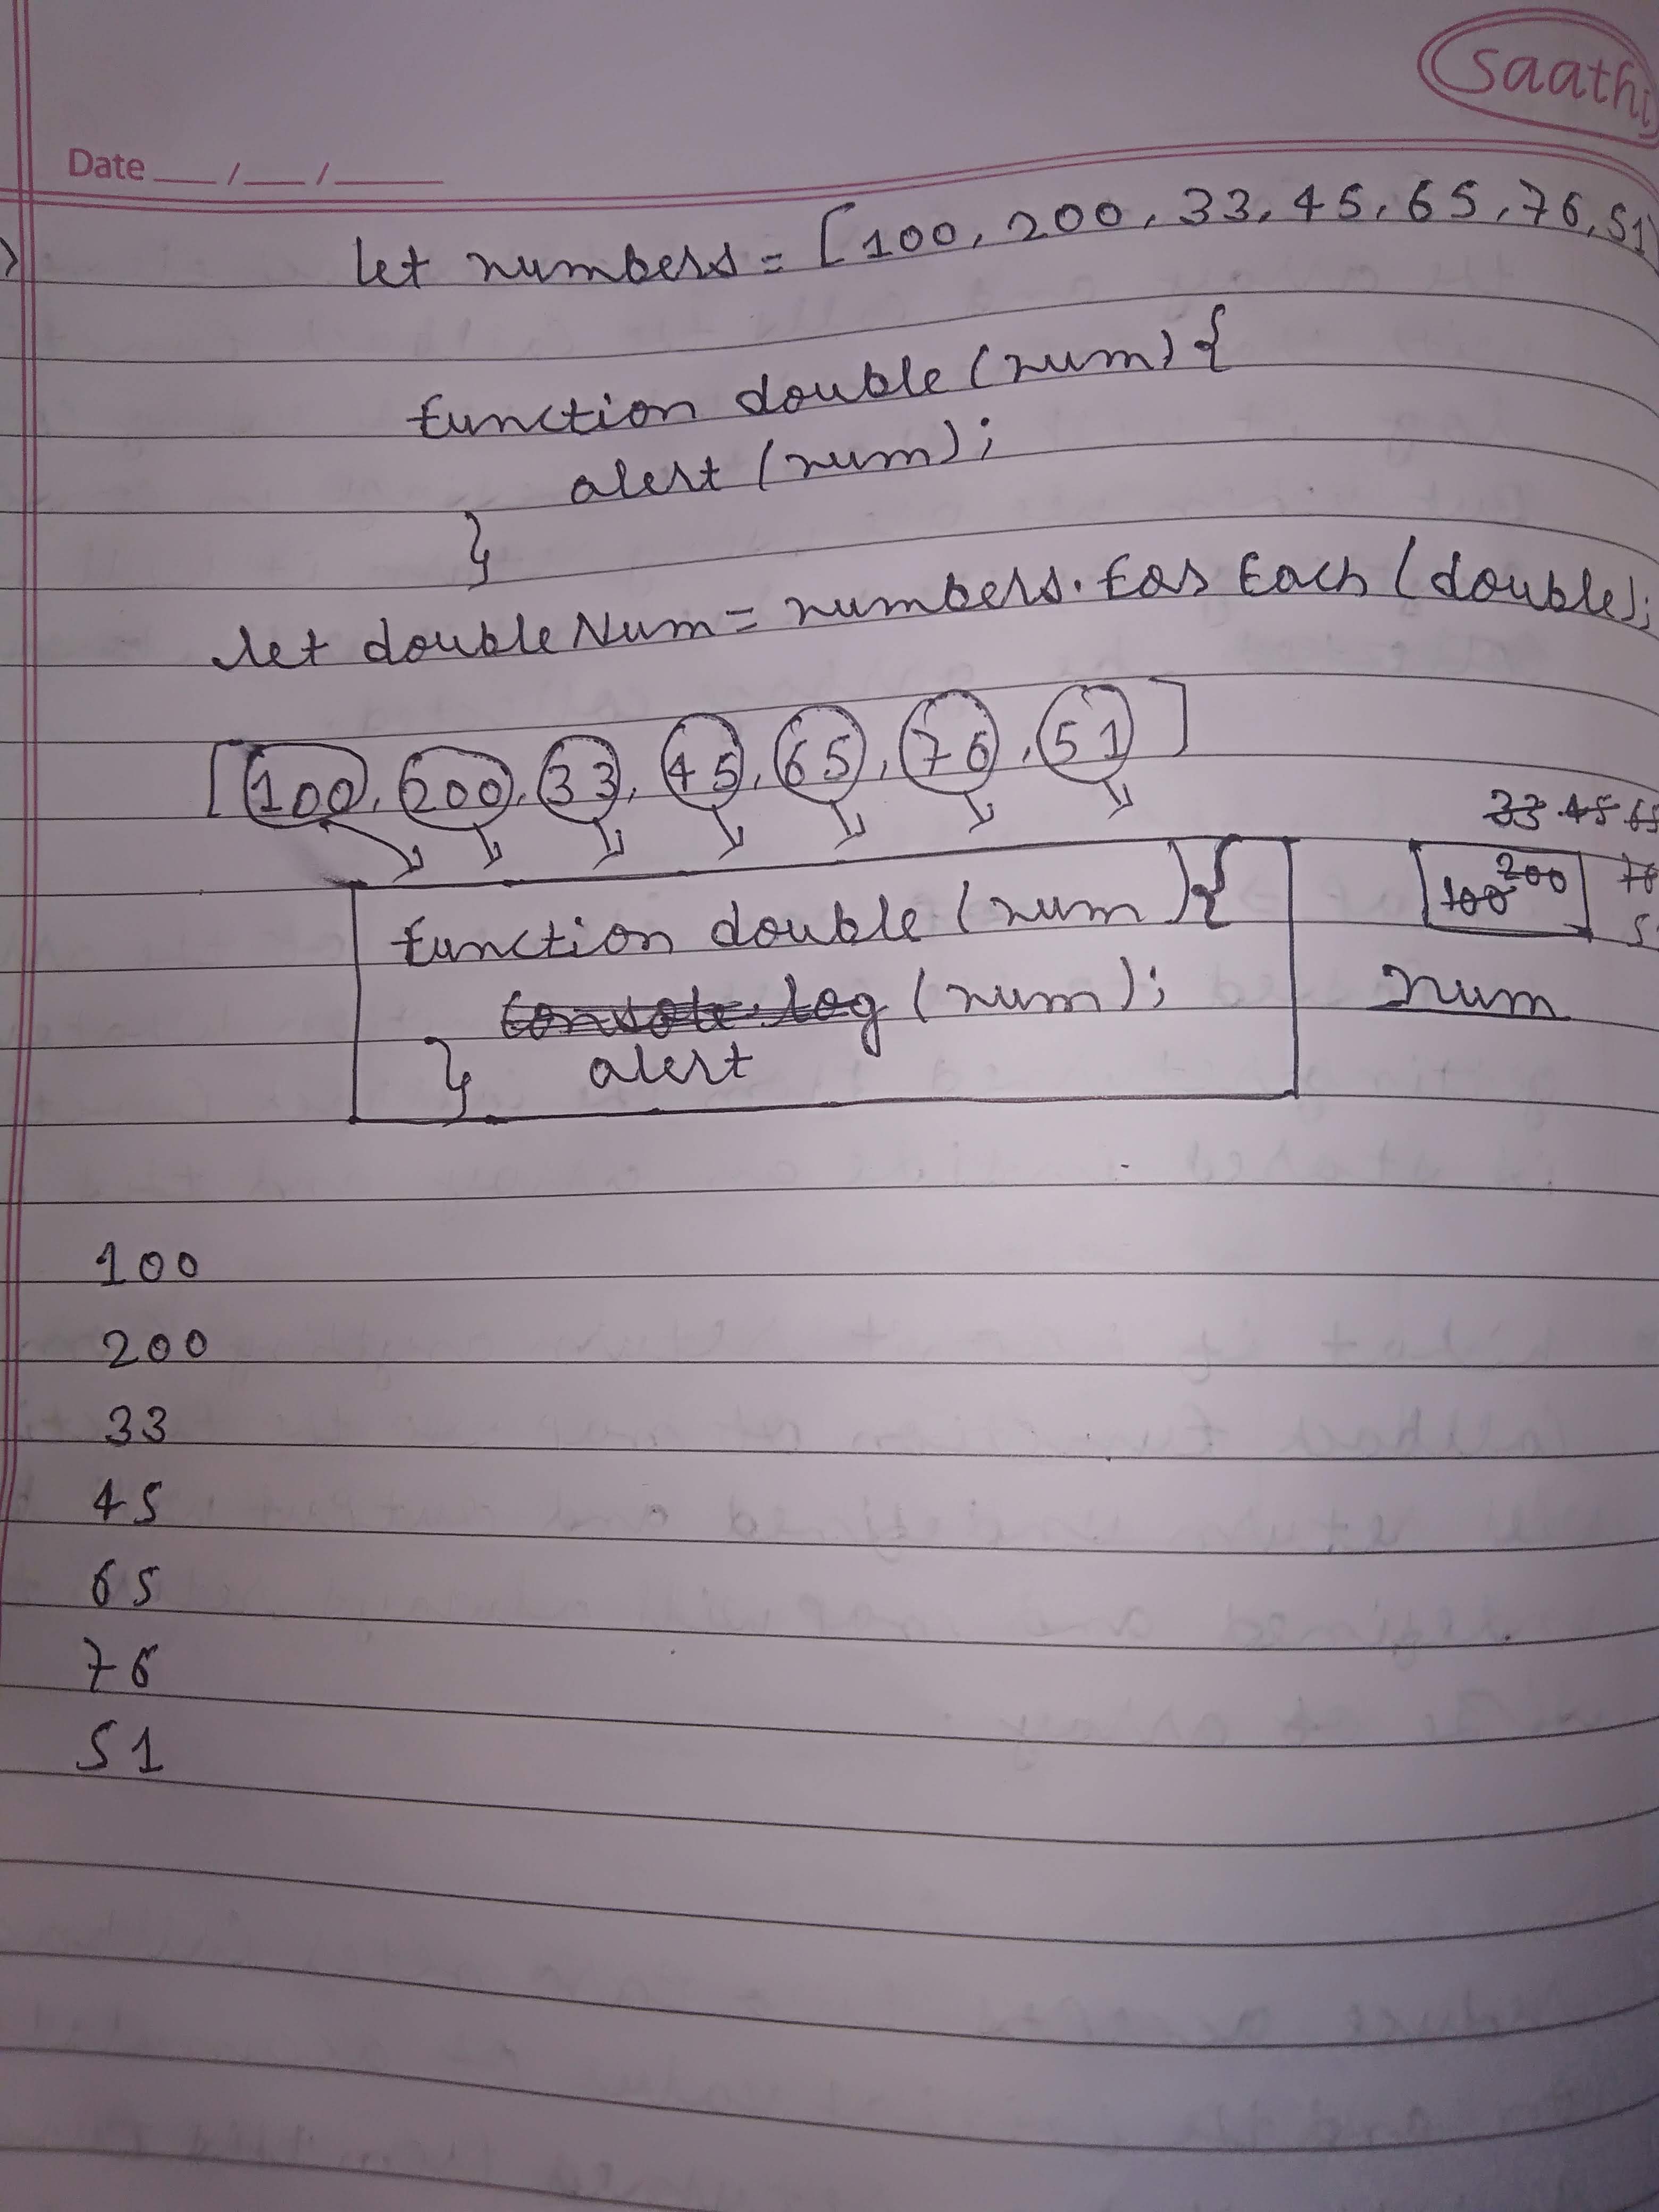 saathi
Date __/__/____
let numbers = [100, 200, 33, 45, 65, 76, 51]
function double (num) {
alert (num);
}
let doubleNum = numbers. for Each (double);
[100, 200, 33, 45, 65, 76, 51]
33 45 65
function double (num) {
100 200 76
console.log (num);
num
} alert
100
200
33
45
65
76
51